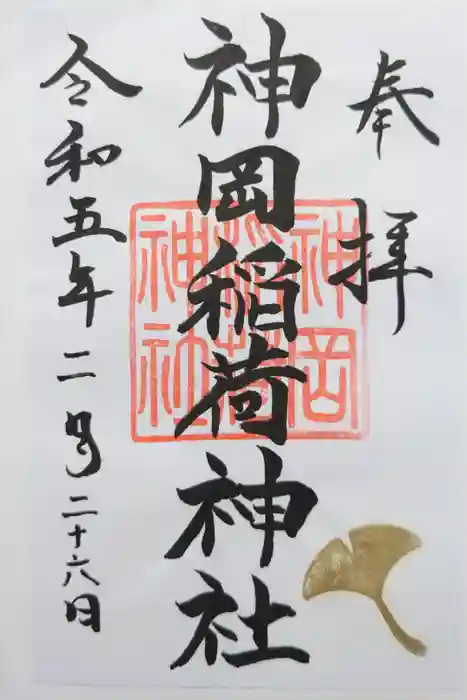 奉拝
神岡稲荷神社
令和五年二月二十六日
神岡
稲荷
神社